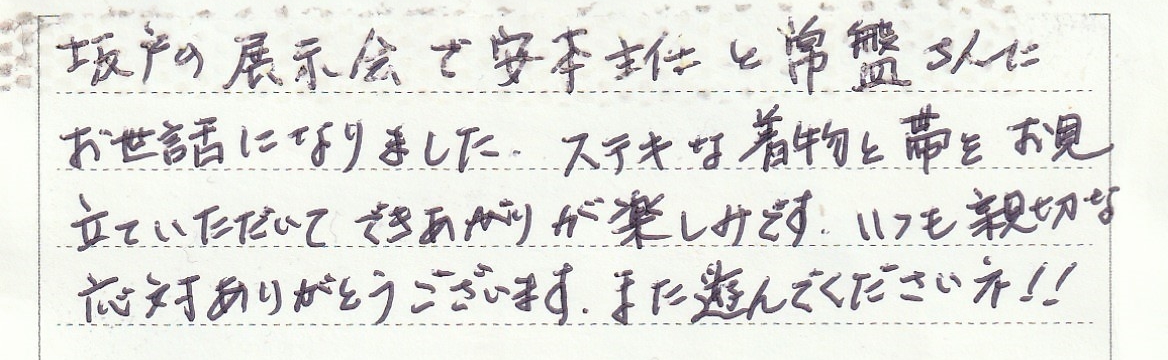 坂戸の展示会で安本主任と常盤さんに
お世話になりました. ステキな着物と帯をお見
立ていただいてできあがりが楽しみです. いつも親切な
応対ありがとうございます. また遊んでくださいネ!!